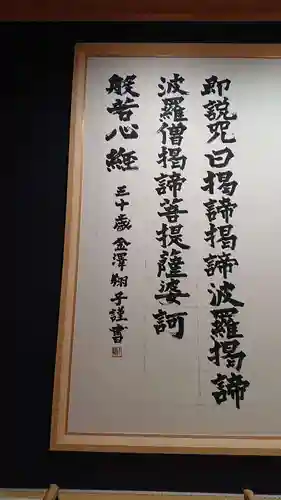 即説咒曰掲諦掲諦波羅掲諦
波羅僧掲諦菩提薩婆訶
般若心経
三十歳金澤翔子謹書